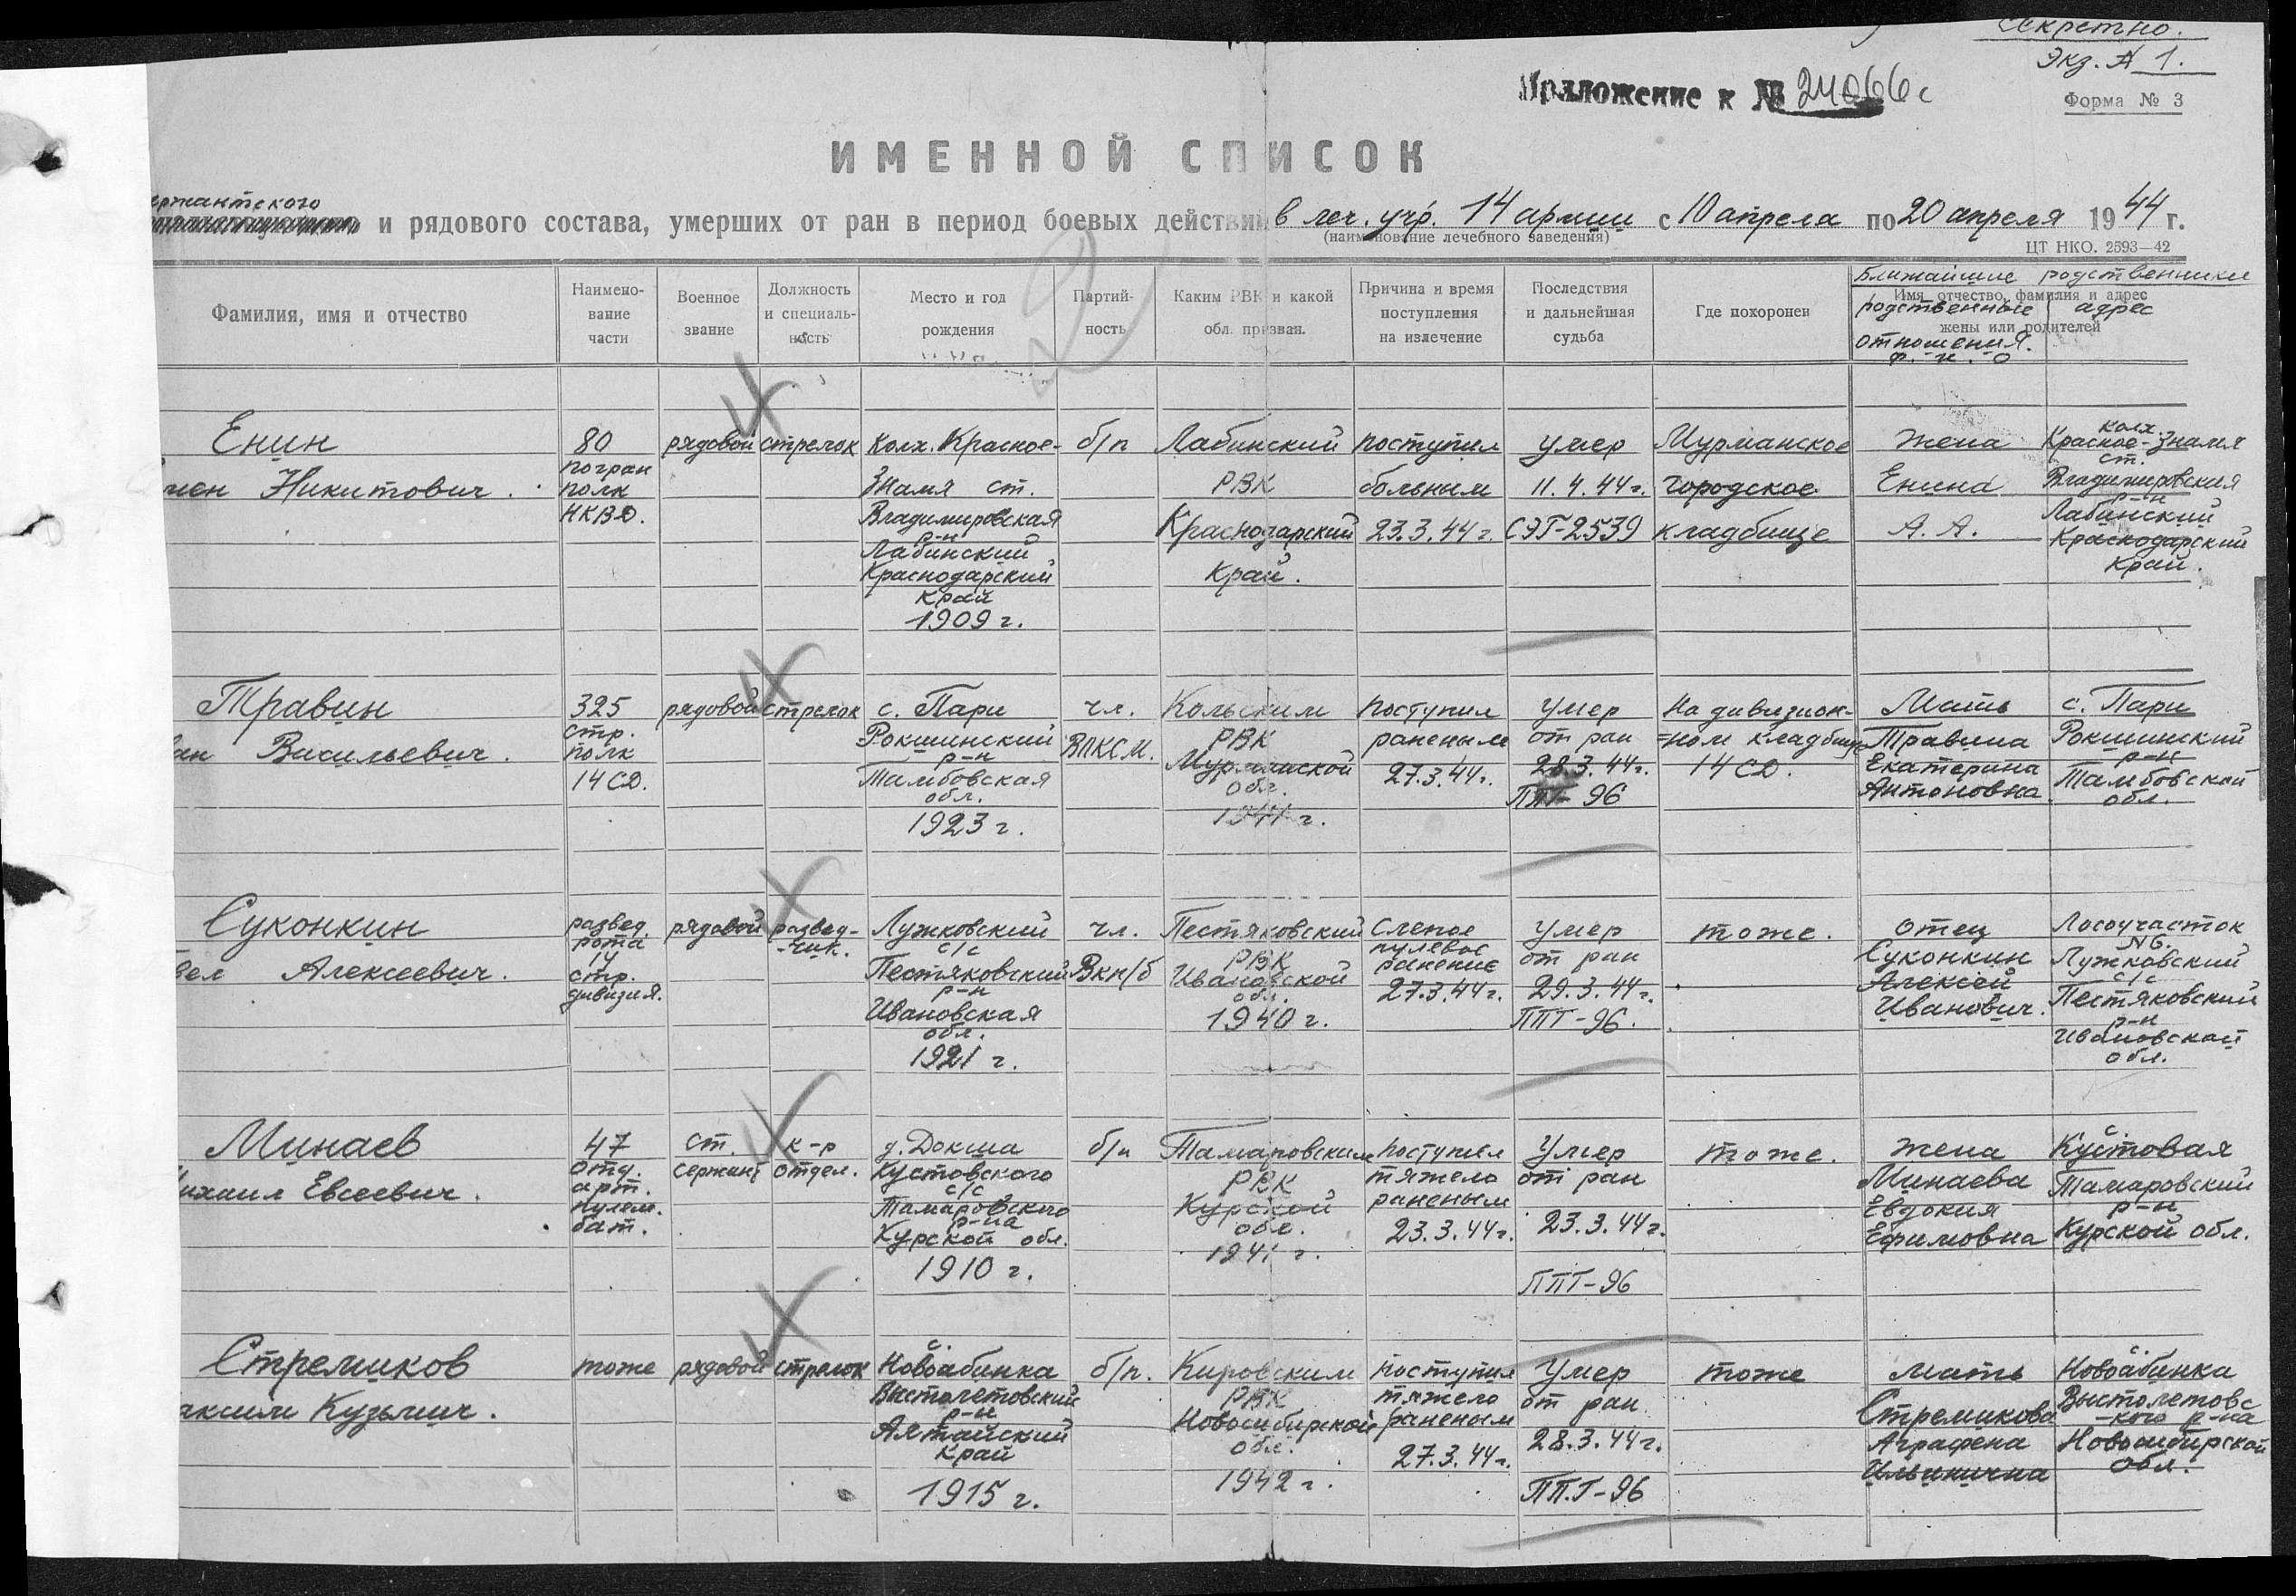 Секретно.
Экз. № 1.
Приложение к № 24066с
Форма № 3
ИМЕННОЙ СПИСОК
ержантского
и рядового состава, умерших от ран в период боевых действий в леч. учр. 14 армии с 10 апреля по 20 апреля 1944 г.
(наименование лечебного заведения)
ЦТ НКО. 2593—42
Фамилия, имя и отчество
Наимено-
вание
части
Военное
звание
Должность
и специаль-
ность
Место и год
рождения
Партий-
ность
Каким РВК и какой
обл. призван.
Причина и время
поступления
на излечение
Последствия
и дальнейшая
судьба
Где похоронен
Ближайшие родственники
Имя, отчество, фамилия и адрес
жены или родителей
родственные
отношения.
ф. и. о
адрес
Енин
мен Никитович.
80
погран
полк
НКВД.
рядовой
стрелок
колх. Красное-
Знамя ст.
Владимировская
р-н
Лабинский
Краснодарский
край
1909 г.
б/п
Лабинский
РВК
Краснодарский
край.
поступил
больным
23.3.44 г.
умер
11.4.44 г.
СЭГ-2539
Мурманское
городское
кладбище
жена
Енина
А. А.
колх.
Красное-Знамя
ст.
Владимировская
р-н
Лабинский
Краснодарский
край.
Травин
ан Васильевич.
325
стр.
полк
14 СД.
рядовой
стрелок
с. Пари
Рокшинский
р-н
Тамбовская
обл.
1923 г.
чл.
ВЛКСМ.
Кольским
РВК
Мурманской
обл.
1941 г.
поступил
раненым
27.3.44 г.
умер
от ран
28.3.44 г.
ППГ-96
На дивизион-
=ном кладбище
14 СД.
Мать
Травина
Екатерина
Антоновна
с. Пари
Рокшинский
р-н
Тамбовской
обл.
Суконкин
вел Алексеевич.
развед.
рота
14
стр.
дивизия.
рядовой
развед-
-чик.
Лужковский
с/с
Пестяковский
р-н
Ивановская
обл.
1921 г.
чл.
Вкп/б
Пестяковский
РВК
Ивановской
обл.
1940 г.
Слепое
пулевое
ранение
27.3.44 г.
умер
от ран
29.3.44 г.
ППГ-96.
тоже.
отец
Суконкин
Алексей
Иванович.
Лосоучасток
N6.
Лужковский
с/с
Пестяковский
р-н
Ивановской
обл.
Минаев
ихаил Евсеевич.
47
отд.
арт.
пулем.
бат.
ст.
сержант
к-р
отдел.
д. Докша
Кустовского
с/с
Тамаровского
р-на
Курской обл.
1910 г.
б/п
Тамаровским
РВК
Курской
обл.
1941 г.
поступил
тяжело
раненым
23.3.44 г.
Умер
от ран
23.3.44 г.
ППГ-96
тоже.
жена
Минаева
Евдокия
Ефимовна
с.
Кустовая
Тамаровский
р-н
Курской обл.
Стремиков
аксим Кузьмич.
тоже
рядовой
стрелок
с.
Новоабинка
Выстолетовский
р-н
Алтайский
край
1915 г.
б/п.
Кировским
РВК
Новосибирской
обл.
1942 г.
поступил
тяжело
раненым
27.3.44 г.
Умер
от ран
28.3.44 г.
ПП.Г-96
тоже
мать
Стремикова
Аграфена
Ильинична
с.
Новоабинка
Выстолетовс
-кого р-на
Новосибирской
обл.